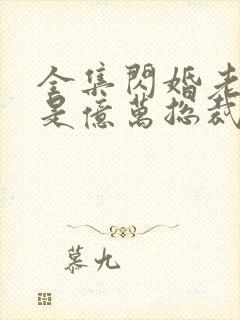 全集閃婚老
是億萬總裁
慕九